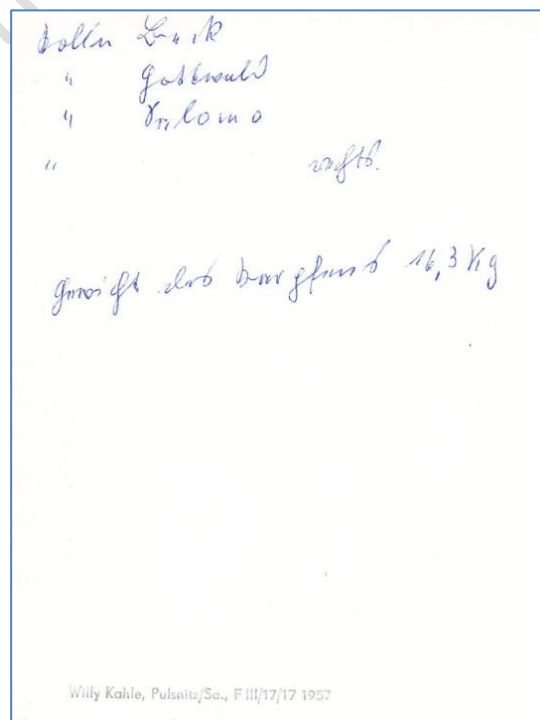 Kolln Buck
" Gottwald
"
" rechts.
Gewicht des Karpfens 16,3 Kg
Willy Kahle, Pulsnitz/Sa., F III/17/17 1957